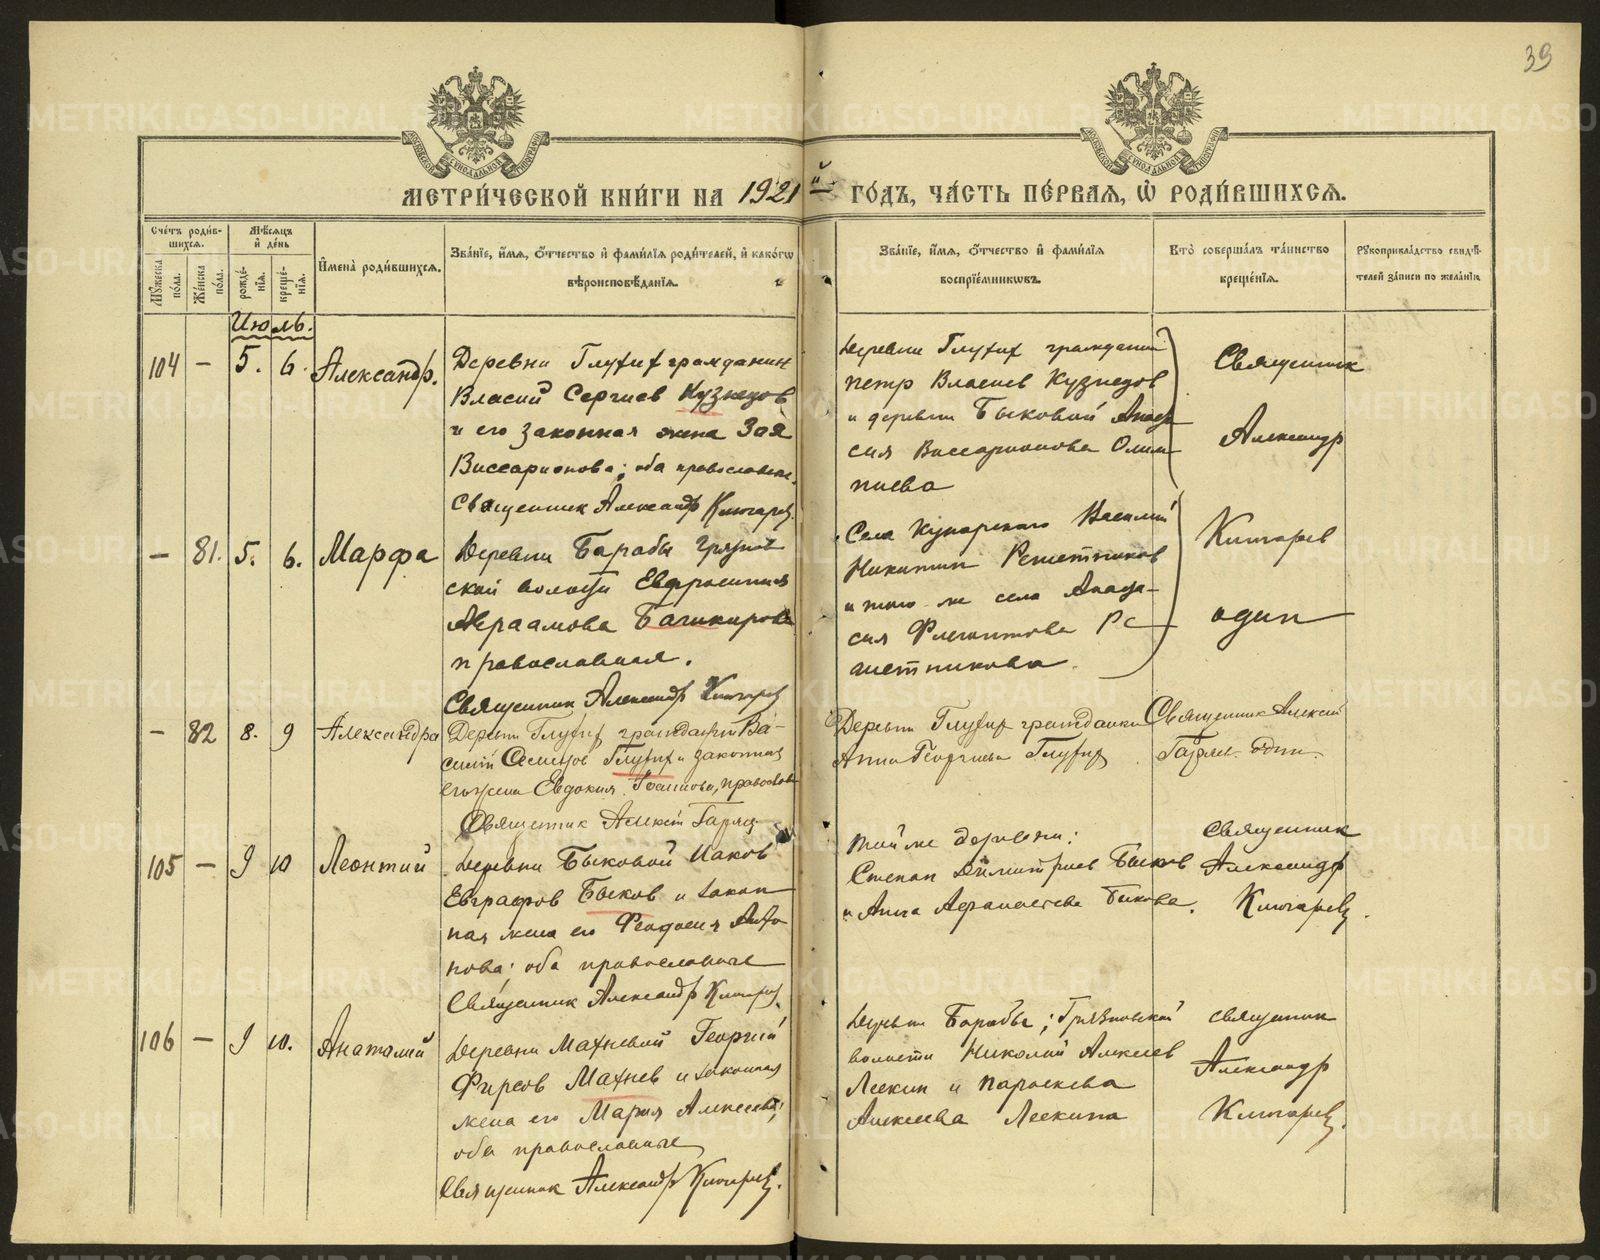 39
МЕТРИ́ЧЕСКОЙ КНИ́ГИ НА 1921 й ГО́ДЪ, ЧА́СТЬ ПЕ́РВАЯ, Ѡ РОДИ́ВШИХСЯ.
Сче́тъ роди́вшихся.
Му́жеска по́ла.
Же́нска по́ла.
Мѣ́сяцъ и де́нь
рожде́нїя.
креще́нїя.
Имена̀ роди́вшихся.
Зва́нїе, и́мя, ѻ҆́тчество и҆ фами́лїя роди́телей, и҆ како́гѡ вѣроисповѣ́данїя.
Зва́нїе, и́мя, ѻ҆́тчество и҆ фами́лїя воспрїе́мниковъ.
Кто̀ соверша́лъ та́инство креще́нїя.
Рукоприкла́дство свидѣ́телей за́писи по жела́нїю.
Июль.
104 — 5. 6. Александр.
Деревни Глухих гражданин
Власий Сергиев Кузнецов
и его законная жена Зоя
Виссарионова; оба православные.
Священник Александр Ключарев
Деревни Глухих гражданин
петр Власиев Кузнецов
и деревни Быковой Анаста
сия Виссарионова Олим
пиева
Священник
Александр
— 81. 5. 6. Марфа
Деревни Барабы Грязнов
ской волости Евфросиния
Авраамова Башкирова
православная.
Священник Александр Ключарев
Села Кунарского Василий
Никитин Решетников
и того же села Анаста-
сия Флегонтова Ре
шетникова.
Ключарев
один
— 82 8. 9 Александра
Деревни Глухих гражданин Ва-
силий Семенов Глухих и законная
его жена Евдокия, православн
Священник Алексей
Деревни Глухих гражданка
Анна Георгиева Глухих
Священник Алексий
один.
105 — 9 10 Леонтий
Деревни Быковой Иаков
Евграфов Быков и закон
ная жена его Феодосия
нова; оба православные
Священник Александр Ключарев.
той же деревни:
Степан Димитриев Быков
и Анна Афанасьева Быкова.
Священник
Александр
Ключарев.
106 — 9 10. Анатолий
Деревни Махневой Георгий
Фирсов Махнев и законная
жена его Мария Алексеева;
оба православные
Священник Александр Ключарев.
Деревни Барабы; Грязновской
волости Николай Алексеев
Лескин и Параскева
Алексеева Лескина
Священник
Александр
Ключарев.
METRIKI.GASO-URAL.RU